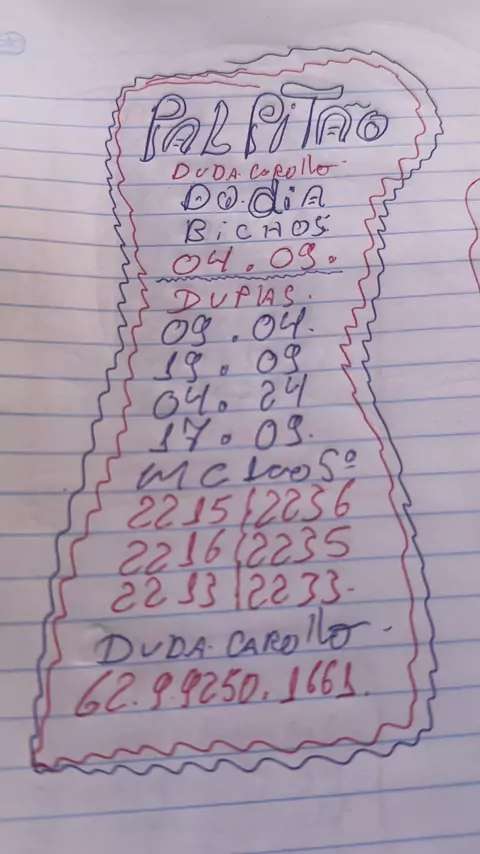 PALPITÃO
DUDA.CAROllO.
DO.diA
BiCHOS
04.09.
DUPlAS.
09.04.
19.09
04.24
17.09.
MC 1ao5º
2215/2236
2216/2235
2213/2233.
DUDA.CAROllO.
62.9.9250.1661.